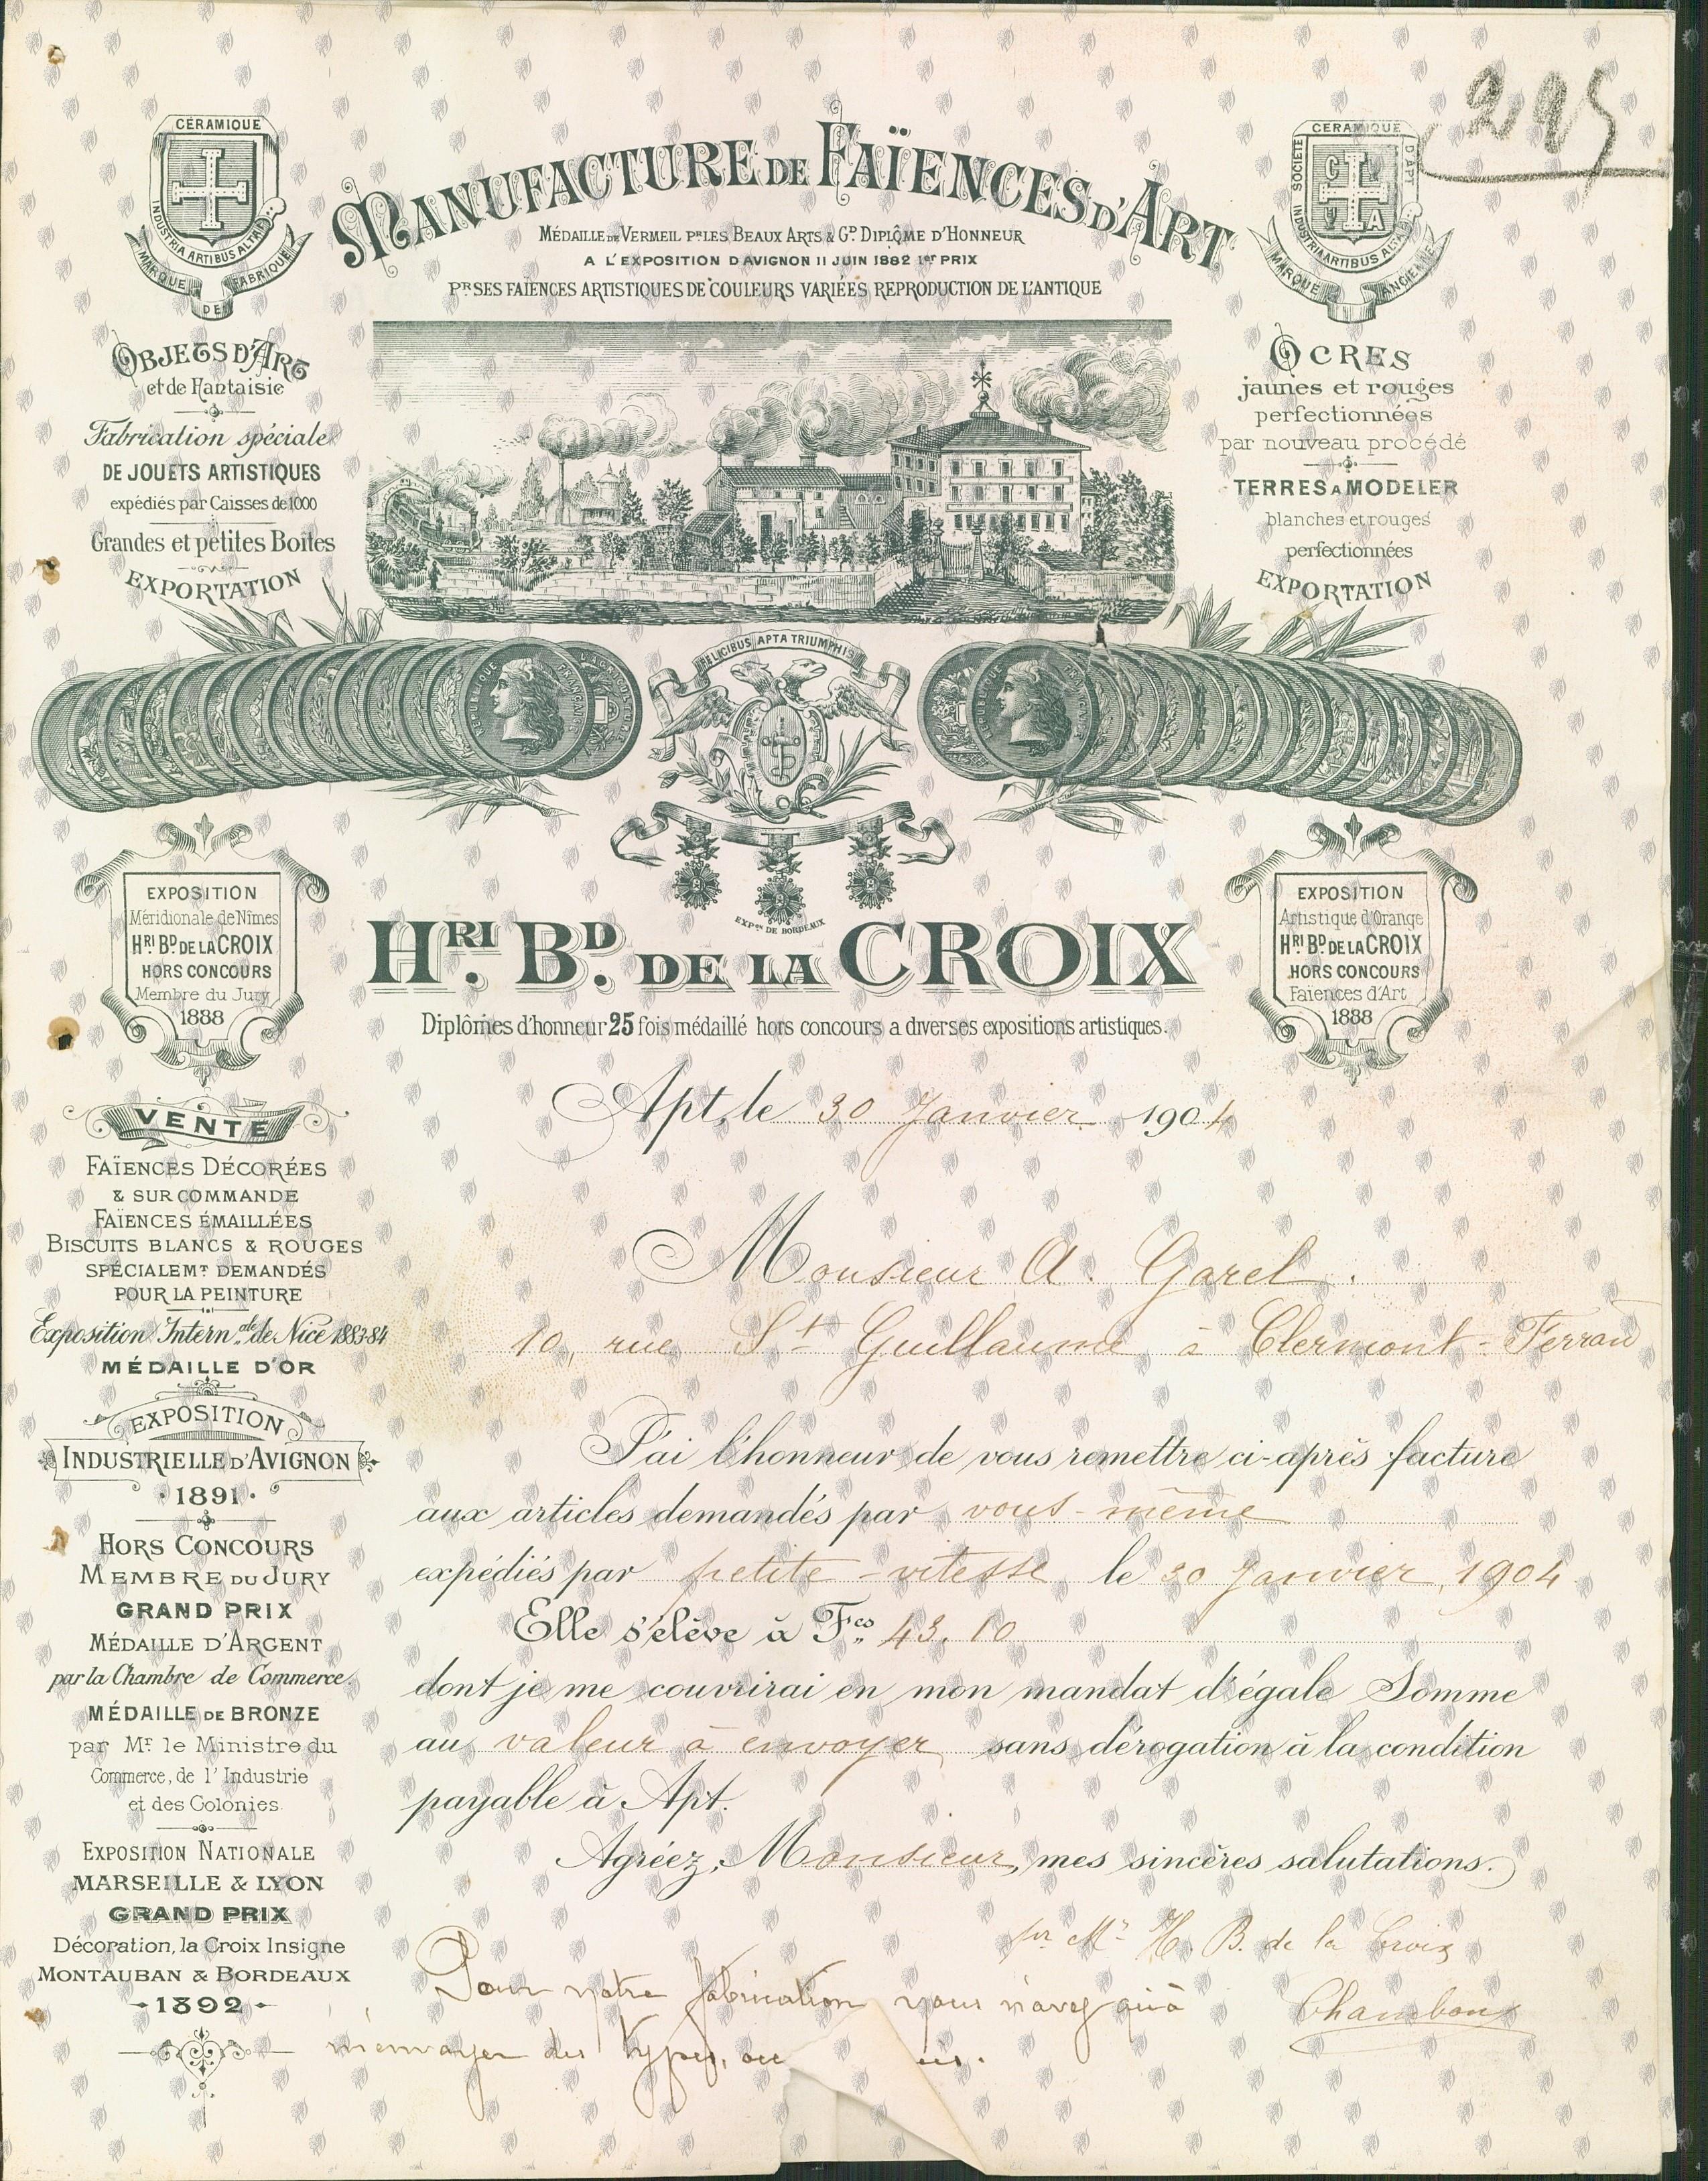 295
CÉRAMIQUE
INDUSTRIA ARTIBUS ALTA
MARQUE DE FABRIQUE
MANUFACTURE DE FAÏENCES D'ART
MÉDAILLE DE VERMEIL PR LES BEAUX ARTS & GD. DIPLÔME D'HONNEUR
A L'EXPOSITION D'AVIGNON 11 JUIN 1882 1ER PRIX
PR SES FAÏENCES ARTISTIQUES DE COULEURS VARIÉES REPRODUCTION DE L'ANTIQUE
CERAMIQUE
SOCIETE
D'APT
INDUSTRIA ARTIBUS ALTA
MARQUE ANCIENNE
OBJETS D'ART
et de Fantaisie
Fabrication spéciale
DE JOUETS ARTISTIQUES
expédiés par Caisses de 1000
Grandes et petites Boites
EXPORTATION
OCRES
jaunes et rouges
perfectionnées
par nouveau procédé
TERRES A MODELER
blanches et rouges
perfectionnées
EXPORTATION
FELICIBUS APTA TRIUMPHIS
REPUBLIQUE FRANCAISE
REPUBLIQUE
EXPON DE BORDEAUX
EXPOSITION
Méridionale de Nîmes
HRI BD. DE LA CROIX
HORS CONCOURS
Membre du Jury
1888
HRI. BD. DE LA CROIX
Diplômes d'honneur 25 fois médaillé hors concours a diverses expositions artistiques.
EXPOSITION
Artistique d'Orange
HRI BD. DE LA CROIX
HORS CONCOURS
Faïences d'Art
1888
Apt, le 30 Janvier 1904
Monsieur A. Garel.
10, rue St Guillaume à Clermont-Ferrand
J'ai l'honneur de vous remettre ci-après facture
aux articles demandés par vous-même
expédiés par petite-vitesse le 30 Janvier 1904
Elle s'élève à Fcs 43.10
dont je me couvrirai en mon mandat d'égale Somme
au valeur à envoyer sans dérogation à la condition
payable à Apt.
Agréez, Monsieur, mes sincères salutations.
pr Mr H. B. de la Croix
Chambon
Pour notre fabrication vous n'avez qu'à
m'envoyer des types, ou
VENTE
FAÏENCES DÉCORÉES
& SUR COMMANDE
FAÏENCES ÉMAILLÉES
BISCUITS BLANCS & ROUGES
SPÉCIALEMT DEMANDÉS
POUR LA PEINTURE
Exposition Internale de Nice 1883-84
MÉDAILLE D'OR
EXPOSITION
INDUSTRIELLE D'AVIGNON
1891
HORS CONCOURS
MEMBRE DU JURY
GRAND PRIX
MÉDAILLE D'ARGENT
par la Chambre de Commerce.
MÉDAILLE DE BRONZE
par Mr le Ministre du
Commerce, de l'Industrie
et des Colonies.
EXPOSITION NATIONALE
MARSEILLE & LYON
GRAND PRIX
Décoration, la Croix Insigne
MONTAUBAN & BORDEAUX
1892